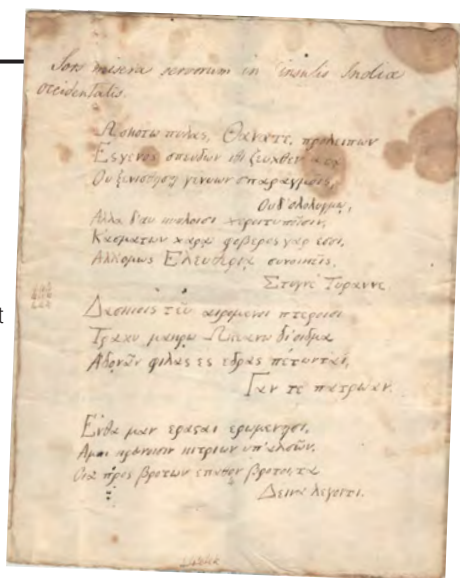 Sors misera servorum in insulis Indiæ
occidentalis.
Ω σκοτω πυλας, Θανατε, προλειπων
Ες γενος σπευδων ιθι ζευχθεν ατᾳ
Ου ξενισθηση γενυων σπαραγμοις,
Ουδ' ολολυγμῳ,
Αλλα δ'αυ κυκλοισι χοροιτυποισιν,
Κασματων χαρᾳ φοβερος γαρ εσσι,
Αλλ'ομως Ελευθεριᾳ συνοικεις,
Στυγνε Τυραννε.
Δασκιοις τευ αιρομενοι πτεροισι
Τραχυ μακρω Ωκεανω δι'οιδμα
Αδονᾶν φιλας ες εδρας πετωνται,
Γαν τε πατρωαν.
Ενθα μαν ερασται ερωμενησι,
Αμφι κρουνοισιν κιτρινων υπ'αλσων,
Οια προς βροτων επαθον βροτοι, τα
Δεινα λεγοντι.